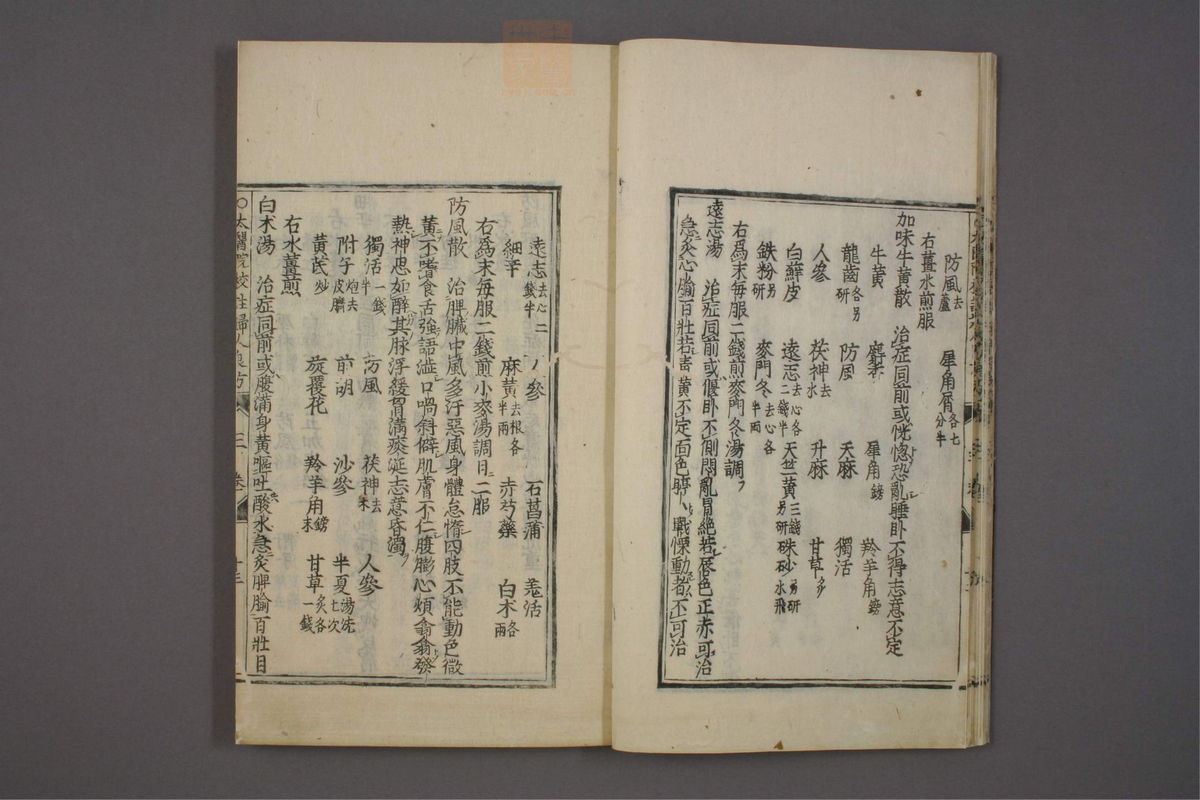 防風去蘆 犀角屑各七分半
右薑水煎服
加味牛黃散 治症同前或恍惚恐亂睡卧不得志意不定
牛黃 麝香 犀角鎊 羚羊角鎊
龍齒各另研 防風 天麻 獨活
人參 茯神去木 升麻 甘草炙
白蘚皮 遠志去心各二錢半 天竺黃三錢另研 硃砂另研水飛
鐵粉另研 麥門冬去心各半兩
右爲末每服二錢煎麥門冬湯調
遠志湯 治症同前或偃卧不側悶亂冒絕若唇色正赤可治
急炙心腧百壯若青黃不定面色戰慄動者不可治
遠志去心二錢半 人參 石菖蒲 羌活
細辛 麻黃去根各半兩 赤芍藥 白术各兩
右爲末每服二錢煎小麥湯調日二服
防風散 治脾臟中風多汗惡風身體怠惰四肢不能動色微
黃不嗜食舌強語澁口喎斜僻肌膚不仁腹膨心煩翕翕發
熱神思如醉其脉浮緩胷滿痰涎志意昏濁
獨活一錢半 防風 茯神去木 人參
附子炮去皮臍 前胡 沙參 半夏湯洗七次
黃茋炒 旋覆花 羚羊角鎊末 甘草炙各一錢
右水薑煎
白术湯 治症同前或慶滿身黃嘔吐酸水急炙脾腧百壯目
○太醫院校註婦人良方 三卷